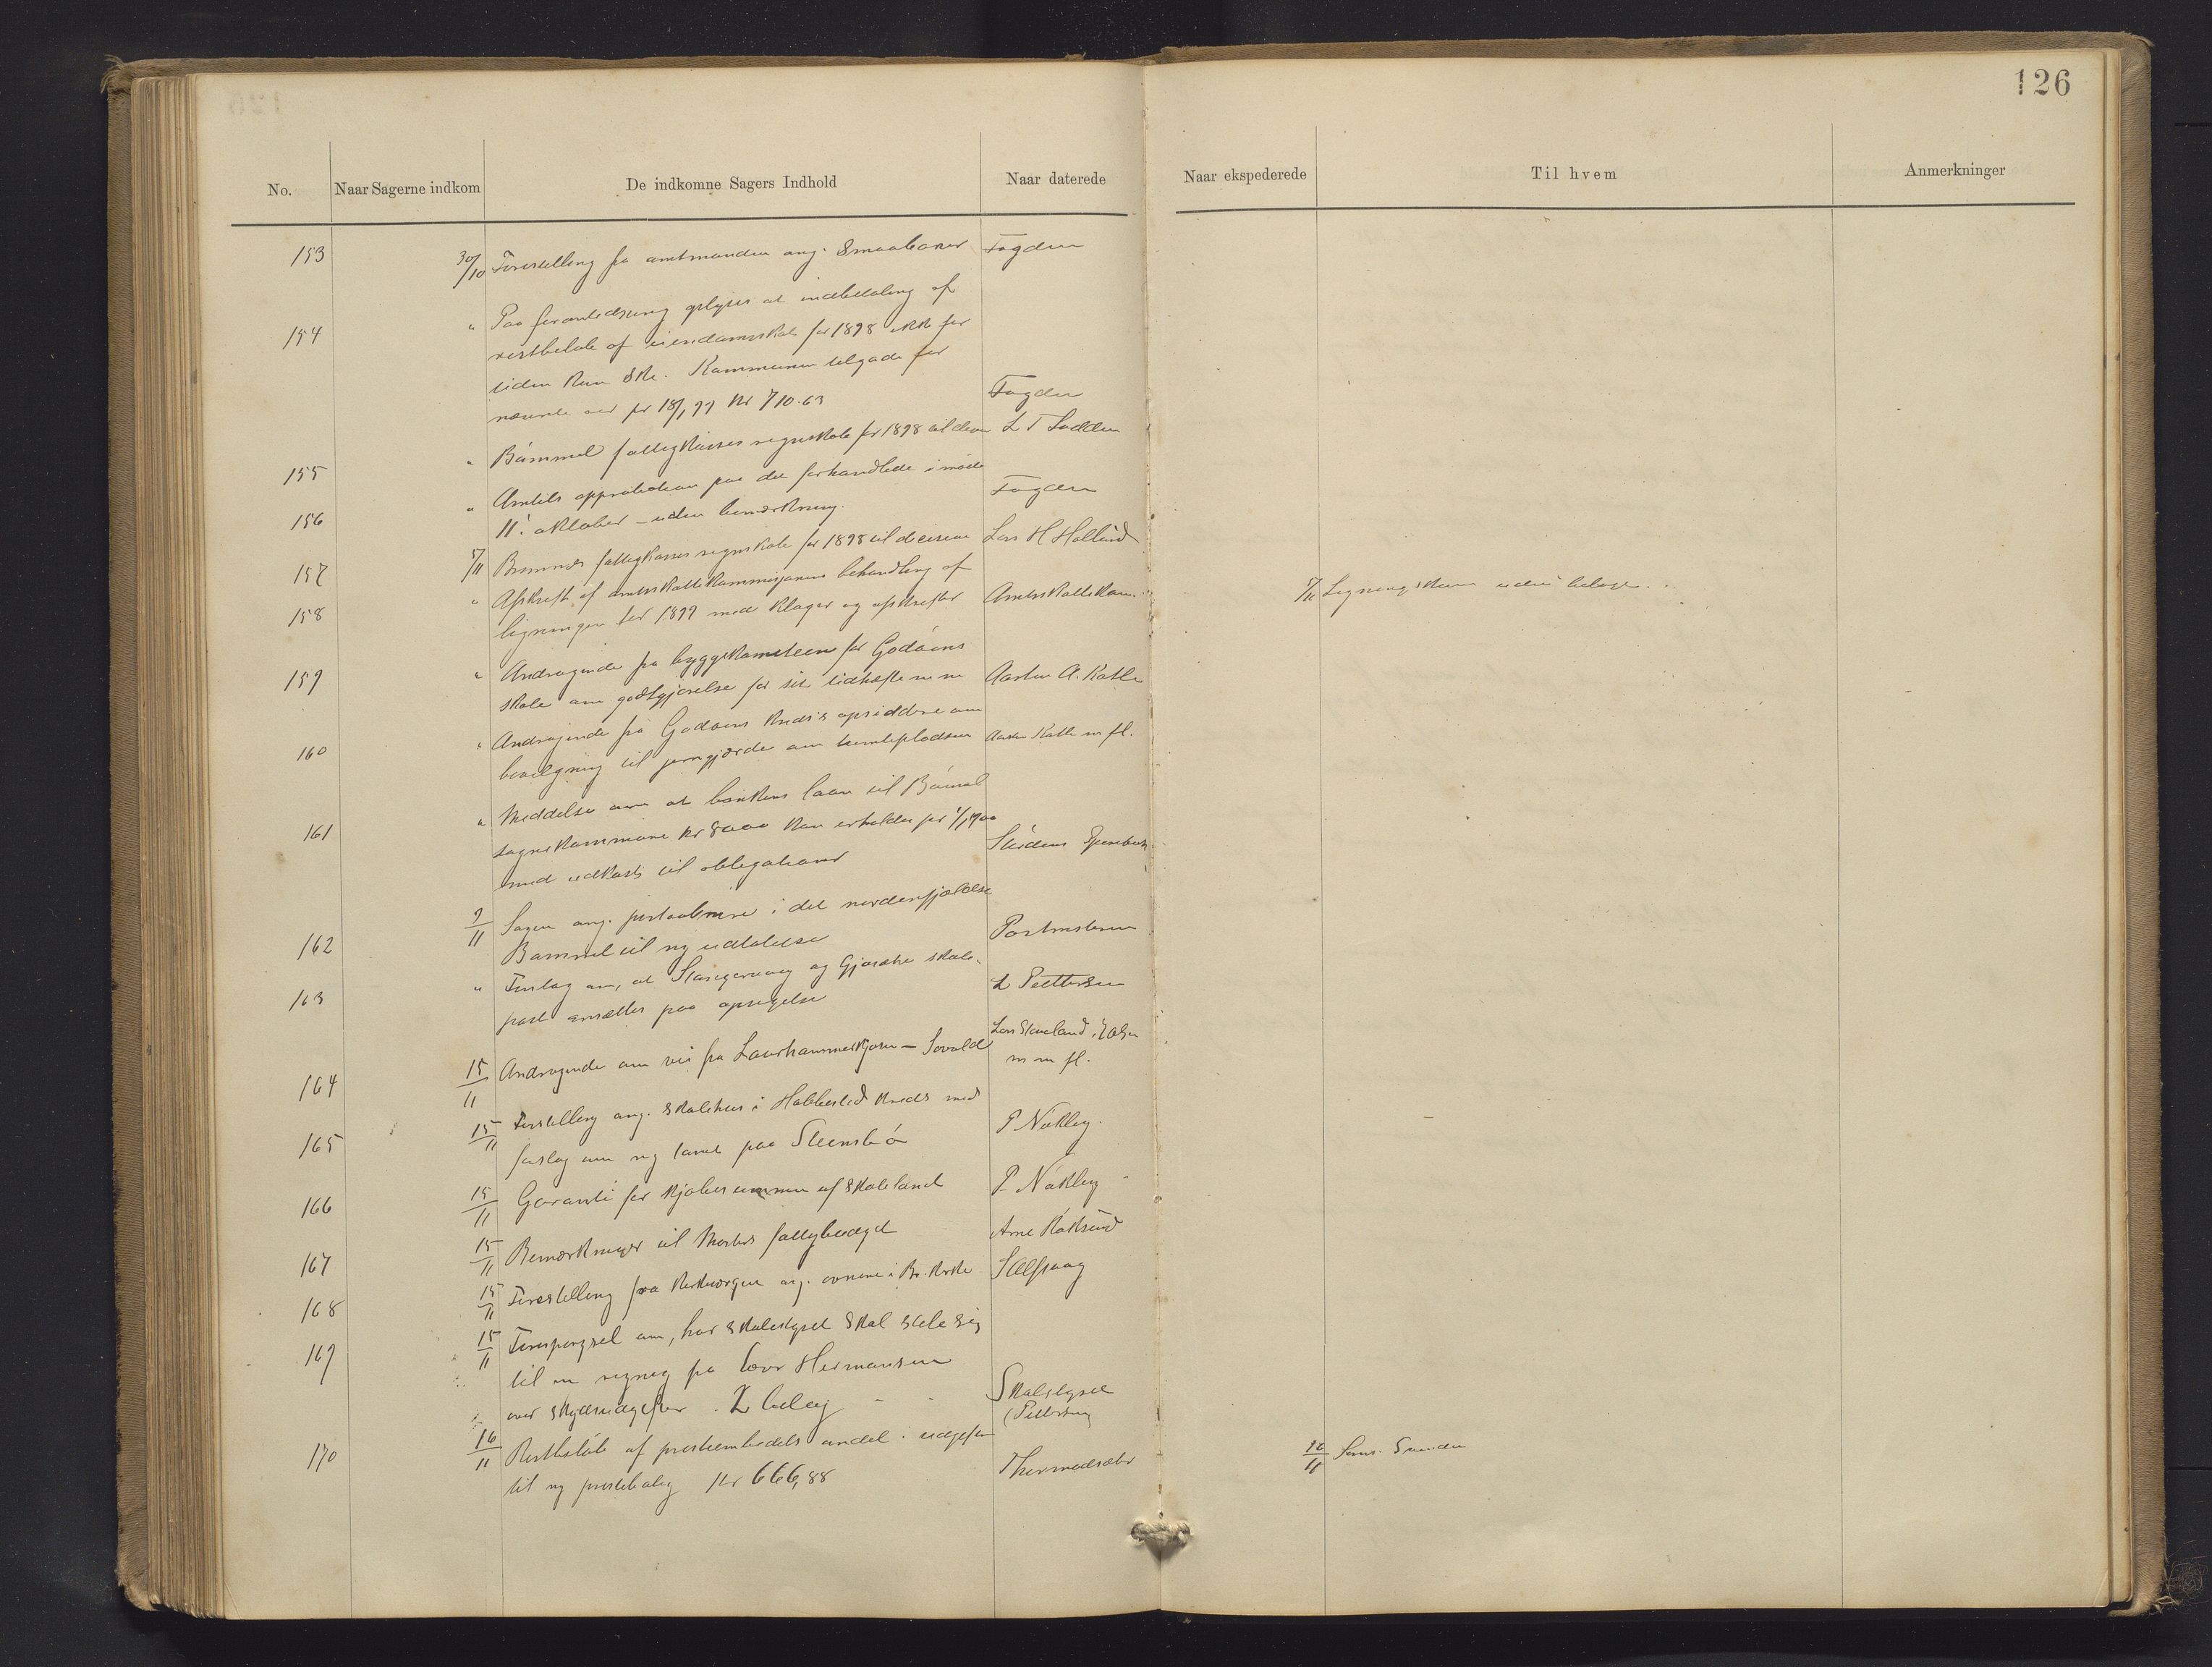 126
No. Naar Sagerne indkom De indkomne Sagers Indhold Naar daterede Naar ekspederede Til hvem Anmerkninger
153 30/10 Forestilling fra amtmanden ang. Smaabaner Fogden
154 " Paa foranledning oplyses at indbetaling af
restbeløb af eiendomsskat for 1898 ikke for
tiden kan ske. Kommunen tilgode for
nævnte aar pr 18/1 99 kr 710.63 Fogden
155 " Bømmel fattigkasses regnskab for 1898 til decis. L T
156 " Amtets approbation paa det forhandlede i møde
11. oktober – uden bemærkning. Fogden
157 5/11 Bremnes fattigkasses regnskab for 1898 til decision Lars H
158 " Afskrift af amtsskattekommisjonens behandling af
ligningen for 1899 med klager og afskrifter Amtsskattekom. 5/11 uden bilage.
159 " Andragende fra byggekomiteen for Godøens
skole om godtgjørelse for sit tidhefte m m A. Katle
160 " Andragende fra Godøens kreds's opsiddere om
bevilgning til jerngjærde om tomteplodsen Katle m fl.
161 " Meddelse om at bankens laan til Bømmel
sognekommune kr 8000 kan erholdes pr 1/1 1900
med udkast til obligationer
162 9/11 Sagen ang. postaabneri i det nordenfjeldske
Bømmel til ny udtalelse Postmesteren
163 " Forslag om, at og Gjøsæter skole-
post ansættes paa opsigelse L Pettersen
164 15/11 Andragende om vei fra – Lars
m m fl.
165 15/11 Forestilling ang. skolehus i Hallested kreds med
forslag om ny tomt paa Steensbø P Nøkling.
166 15/11 Garanti for kjøbesummen af skoleland P. Nøkling
167 15/11 Bemærkninger til Mosters fattigbudget Arne Røksund
168 15/11 Forestilling fra kirkeværgen ang. ovnene i Br. kirke
169 15/11 Forespørgsel om, hvor skolestyret skal stille sig
til en regning fra Hermansen
over skydsudgifter. 2 bilag Skolestyret
(Pettersen)
170 16/11 Restbeløb af presteembedets andel i udgifter
til ny prestebolig Kr 666,88 16/11